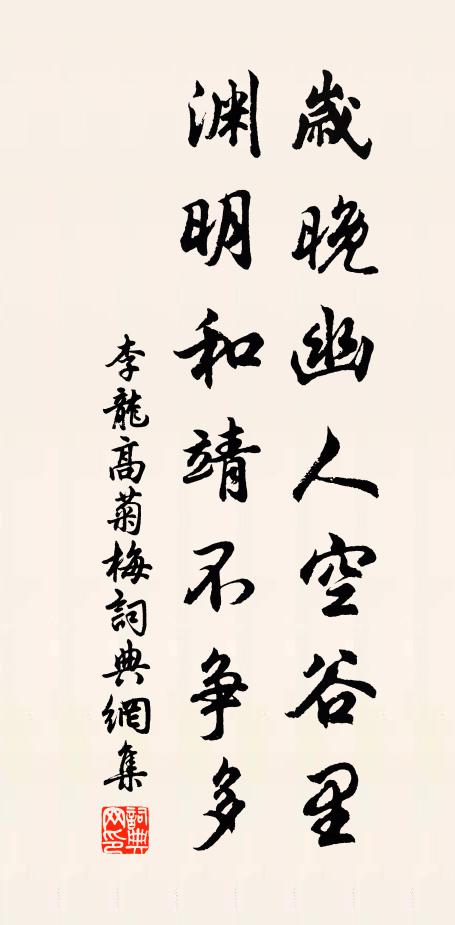 歲晚幽人空谷里
渊明和靖不争多
李龍高菊梅詞典網集
詞典网印